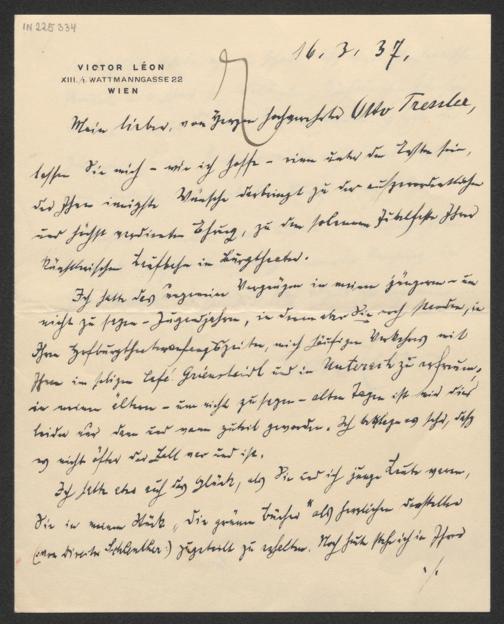 IN 225334
VICTOR LÉON
XIII/1. WATTMANNGASSE 22
WIEN
16. 3. 37.
Mein lieber, von Herzen hochverehrter Otto Tressler,
lassen Sie mich – wie ich hoffe – einen unter den Ersten sein,
der Ihnen innigste Wünsche darbringt zu der außerordentlichen
und höchst verdienten Ehrung, zu dem solennen Jubelfeste Ihres
künstlerischen im Burgtheater.
Ich hatte das Vergnügen in meinen jüngeren – um
nicht zu sagen – Jugendjahren, in denen aber Sie noch standen, in
Ihren mich häufigen Verkehres mit
Ihnen im seligen Café Griensteidl und in Unterach zu erfreuen,
in meinen ältern – um nicht zu sagen – alten Tagen ist mir dies
leider nur dann und wann zuteil geworden. Ich beklage es sehr, daß
es nicht öfter der Fall war und ist.
Ich hatte aber auch das Glück, als Sie und ich junge Leute waren,
Sie in einem Stück „Die grünen Bücher“ als herrlichen Darsteller
zugeteilt zu erhalten. Noch heute stehe ich in Ihrer
./.